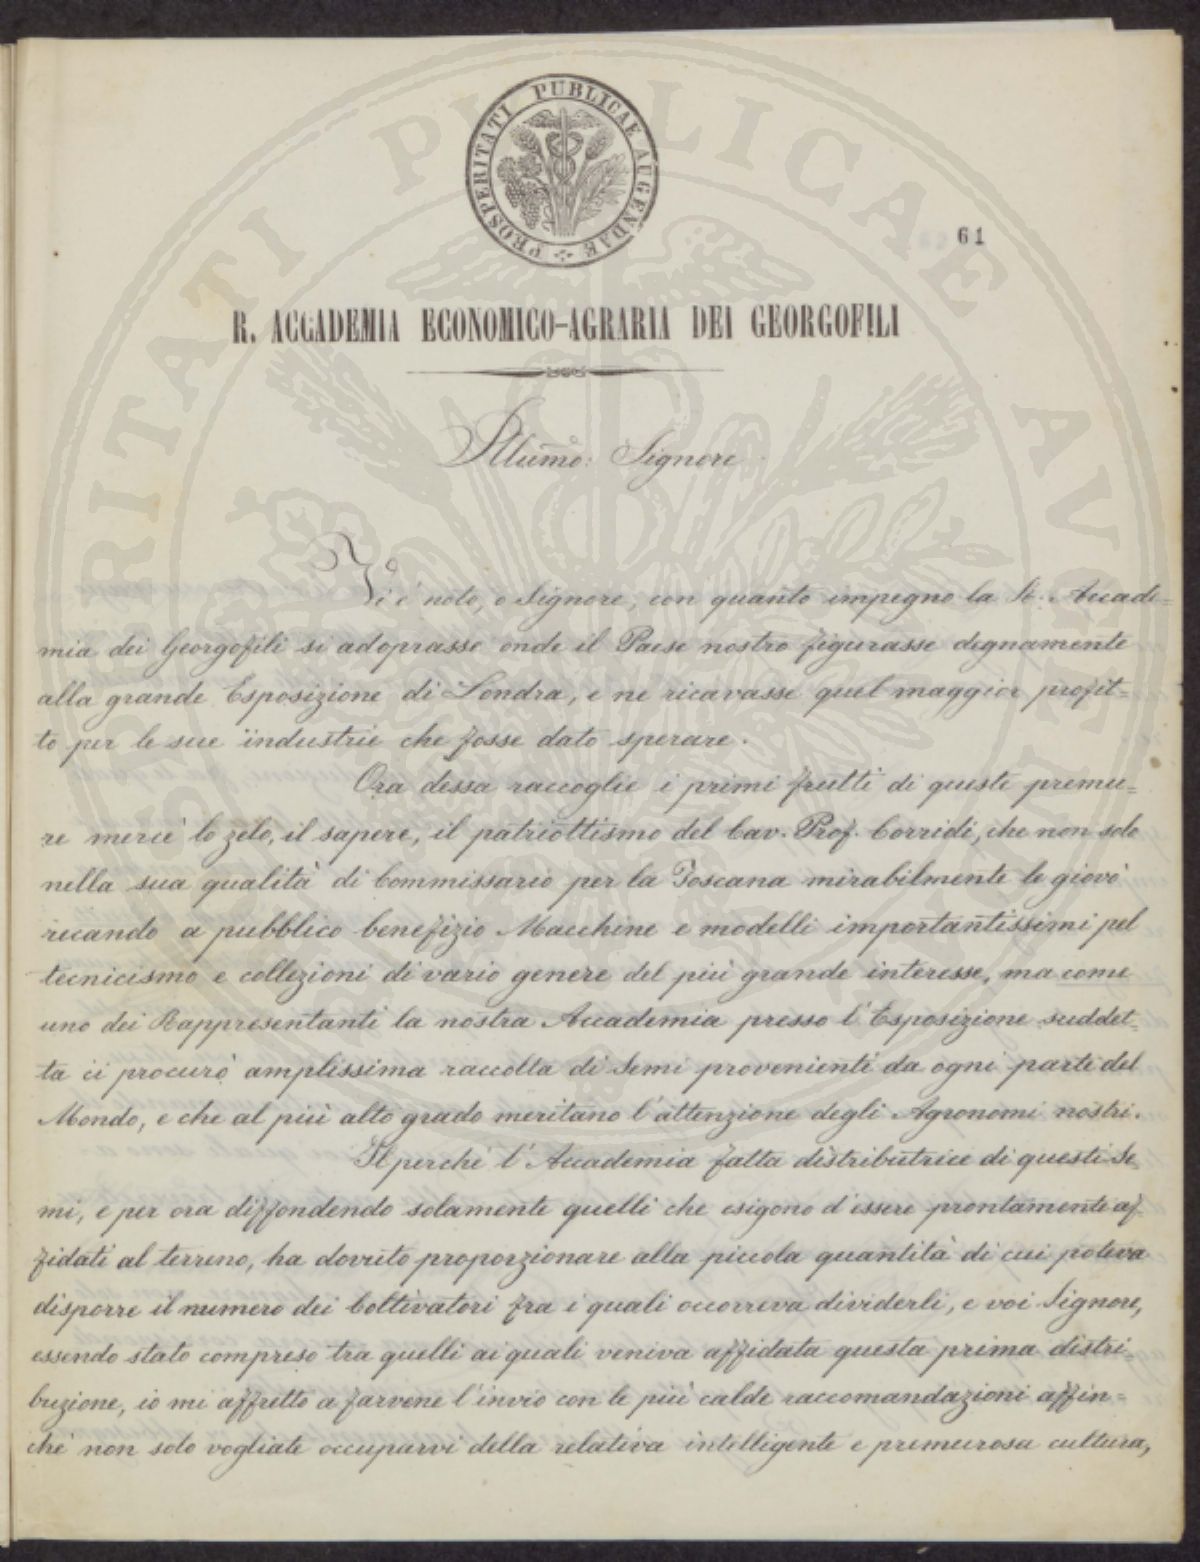 PROSPERITATI PUBLICAE AUGENDAE
61
R. ACCADEMIA ECONOMICO-AGRARIA DEI GEORGOFILI
Illumo: Signore
Vi è noto, o Signore, con quanto impegno la R. Accade=
mia dei Georgofili si adoprasse onde il Paese nostro figurasse degnamente
alla grande Esposizione di Londra, e ne ricavasse quel maggior profit=
to per le sue industrie che fosse dato sperare.
Ora dessa raccoglie i primi frutti di queste premu=
re mercè lo zelo, il sapere, il patriottismo del Cav. Prof. Corridi, che non solo
nella sua qualità di Commissario per la Toscana mirabilmente le giovò
recando a pubblico benefizio Macchine e modelli importantissimi pel
tecnicismo e collezioni di vario genere del più grande interesse, ma come
uno dei Rappresentanti la nostra Accademia presso l'Esposizione suddet=
ta ci procurò amplissima raccolta di Semi provenienti da ogni parte del
Mondo, e che al più alto grado meritano l'attenzione degli Agronomi nostri.
Il perchè l'Accademia fatta distributrice di questi Se=
mi, e per ora diffondendo solamente quelli che esigono d'essere prontamente af=
fidati al terreno, ha dovuto proporzionare alla piccola quantità di cui poteva
disporre il numero dei Coltivatori fra i quali occorreva dividerli, e voi Signore,
essendo stato compreso tra quelli ai quali veniva affidata questa prima distri=
buzione, io mi affretto a farvene l'invio con le più calde raccomandazioni affin=
chè non solo vogliate occuparvi della relativa intelligente e premurosa cultura,